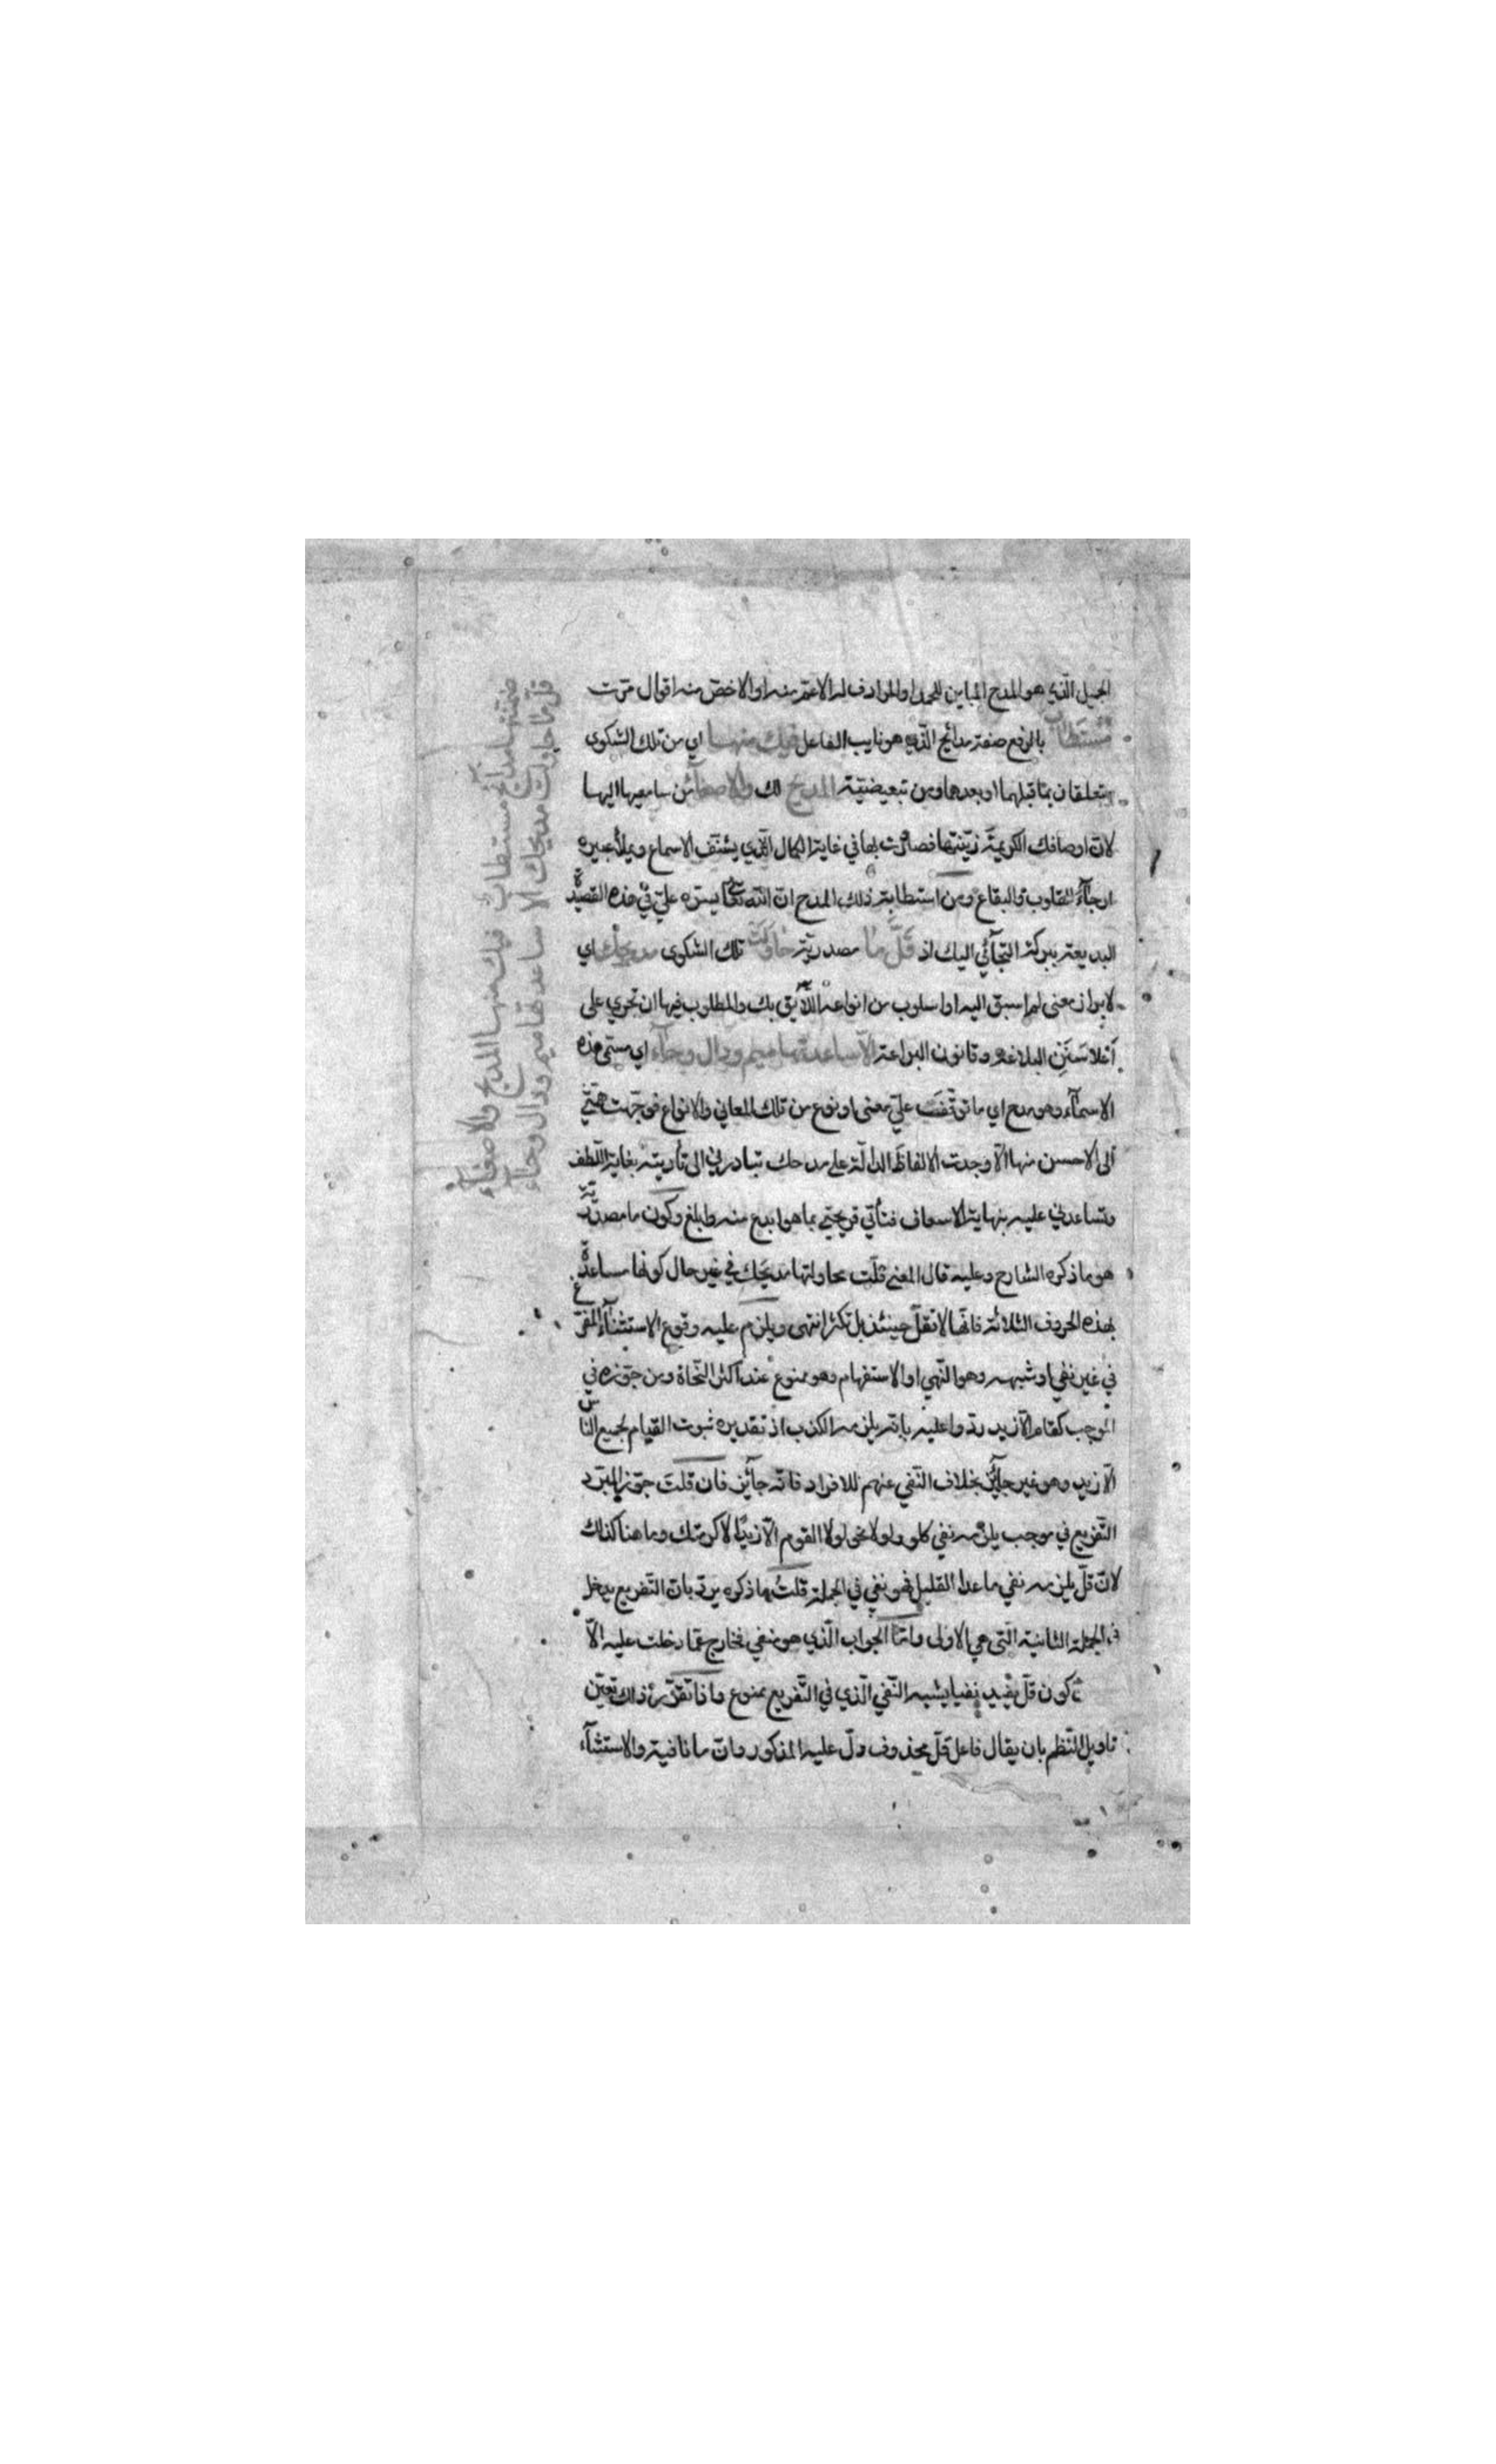 الجميل الّذي هو المدح المباين للحمد او المرادف له الاعمّ منه او الاخصّ منه اقوال مرّت
مُستَطابٌ بالرفع صفة مدائح الّذي هو نايب الفاعل فيك منهـا اي من تلك الشكوى
يتعلقان بما قبلهما او بعدهما ومن تبعيضيّة المديح لك والاصغآء من سامعيها اليها
لانّ اوصافك الكريمة زيّنتها فصارت بها في غاية الكمال الّذي يشنّف الاسماع ويملأ عبيره
ارجآء القلوب والبقاع ومن استطابة ذلك المدح انّ الله تعالى يسّره عليّ في هذه القصيدة
البديعة ببركة التجآئي اليك اذ قَلَّ ما مصدريّة حاوَلَت تلك الشكوى مديحك اي
لابراز معنى لم اسبق اليه او اسلوب من انواعه اللّايق بك والمطلوب فيها ان تجري على
سَنَنِ البلاغة وقانون البراعة الّا ساعدتها ميم ودال وحآء اي مسمّى هذه
الاسمآء وهو مدح اي ما توقّفَت عليّ معنى او نوع من تلك المعاني والانواع فوجّهت همّتي
الى الاحسن منها الّا وجدت الالفاظ الدالّة على مدحك تبادرني الى تأديته بغاية اللّطف
وتساعدني عليه بنهاية الاسعاف فتأتي قريحتي بما هو ابدع منه وابلغ وكون ما مصدريّة
هو ما ذكره الشارح وعليه قال المعنى قلّت محاولتها مديحك في غير حال كونها مساعدة
بهذه الحروف الثلاثة فانّها لا تقلّ حينئذ بل تكثر انتهى ويلزم عليه وقوع الاستثنآء المفرّغ
في غير نفي او شبهه وهو النّهي او الاستفهام وهو ممنوع عند اكثر النّحاة ومن جوّزه في
الموجب كقام الّا زيد ردّوا عليه بانّه يلزمه الكذب اذ تقديره ثبوت القيام لجميع الناس
الّا زيد وهو غير جآئز بخلاف النّفي عنهم للافراد فانّه جآئز فان قلت جوّز المبرّد
التّفريع في موجب يلزمه نفي كلو ولولا نحو لولا القوم الّا زيدًا لاكرمتك وما هنا كذلك
لانّ قلّ يلزمه نفي ما عدا القليل فهو نفي في الجملة قلتُ ما ذكره يردّ بانّ التّفريع يدخل
في الجملة الثانية الّتي هي الاولى وامّا الجواب الّذي هو منفي فخارج عمّا دخلت عليه الّا
كون قلّ يفيد نفيا يشبه النّفي الّذي في التّفريع ممنوع واذا تقرّر ذلك تعيّن
تاويل النّظم بان يقال فاعل قلّ محذوف دلّ عليه المذكور وانّ ما نافية والاستثنآء
ضمّنتها مدائح مستطابٌ فيك منهـا المديح والاصغآء
قلّ ما حاولت مديحك الّا ساعدتها ميم ودال وحآء